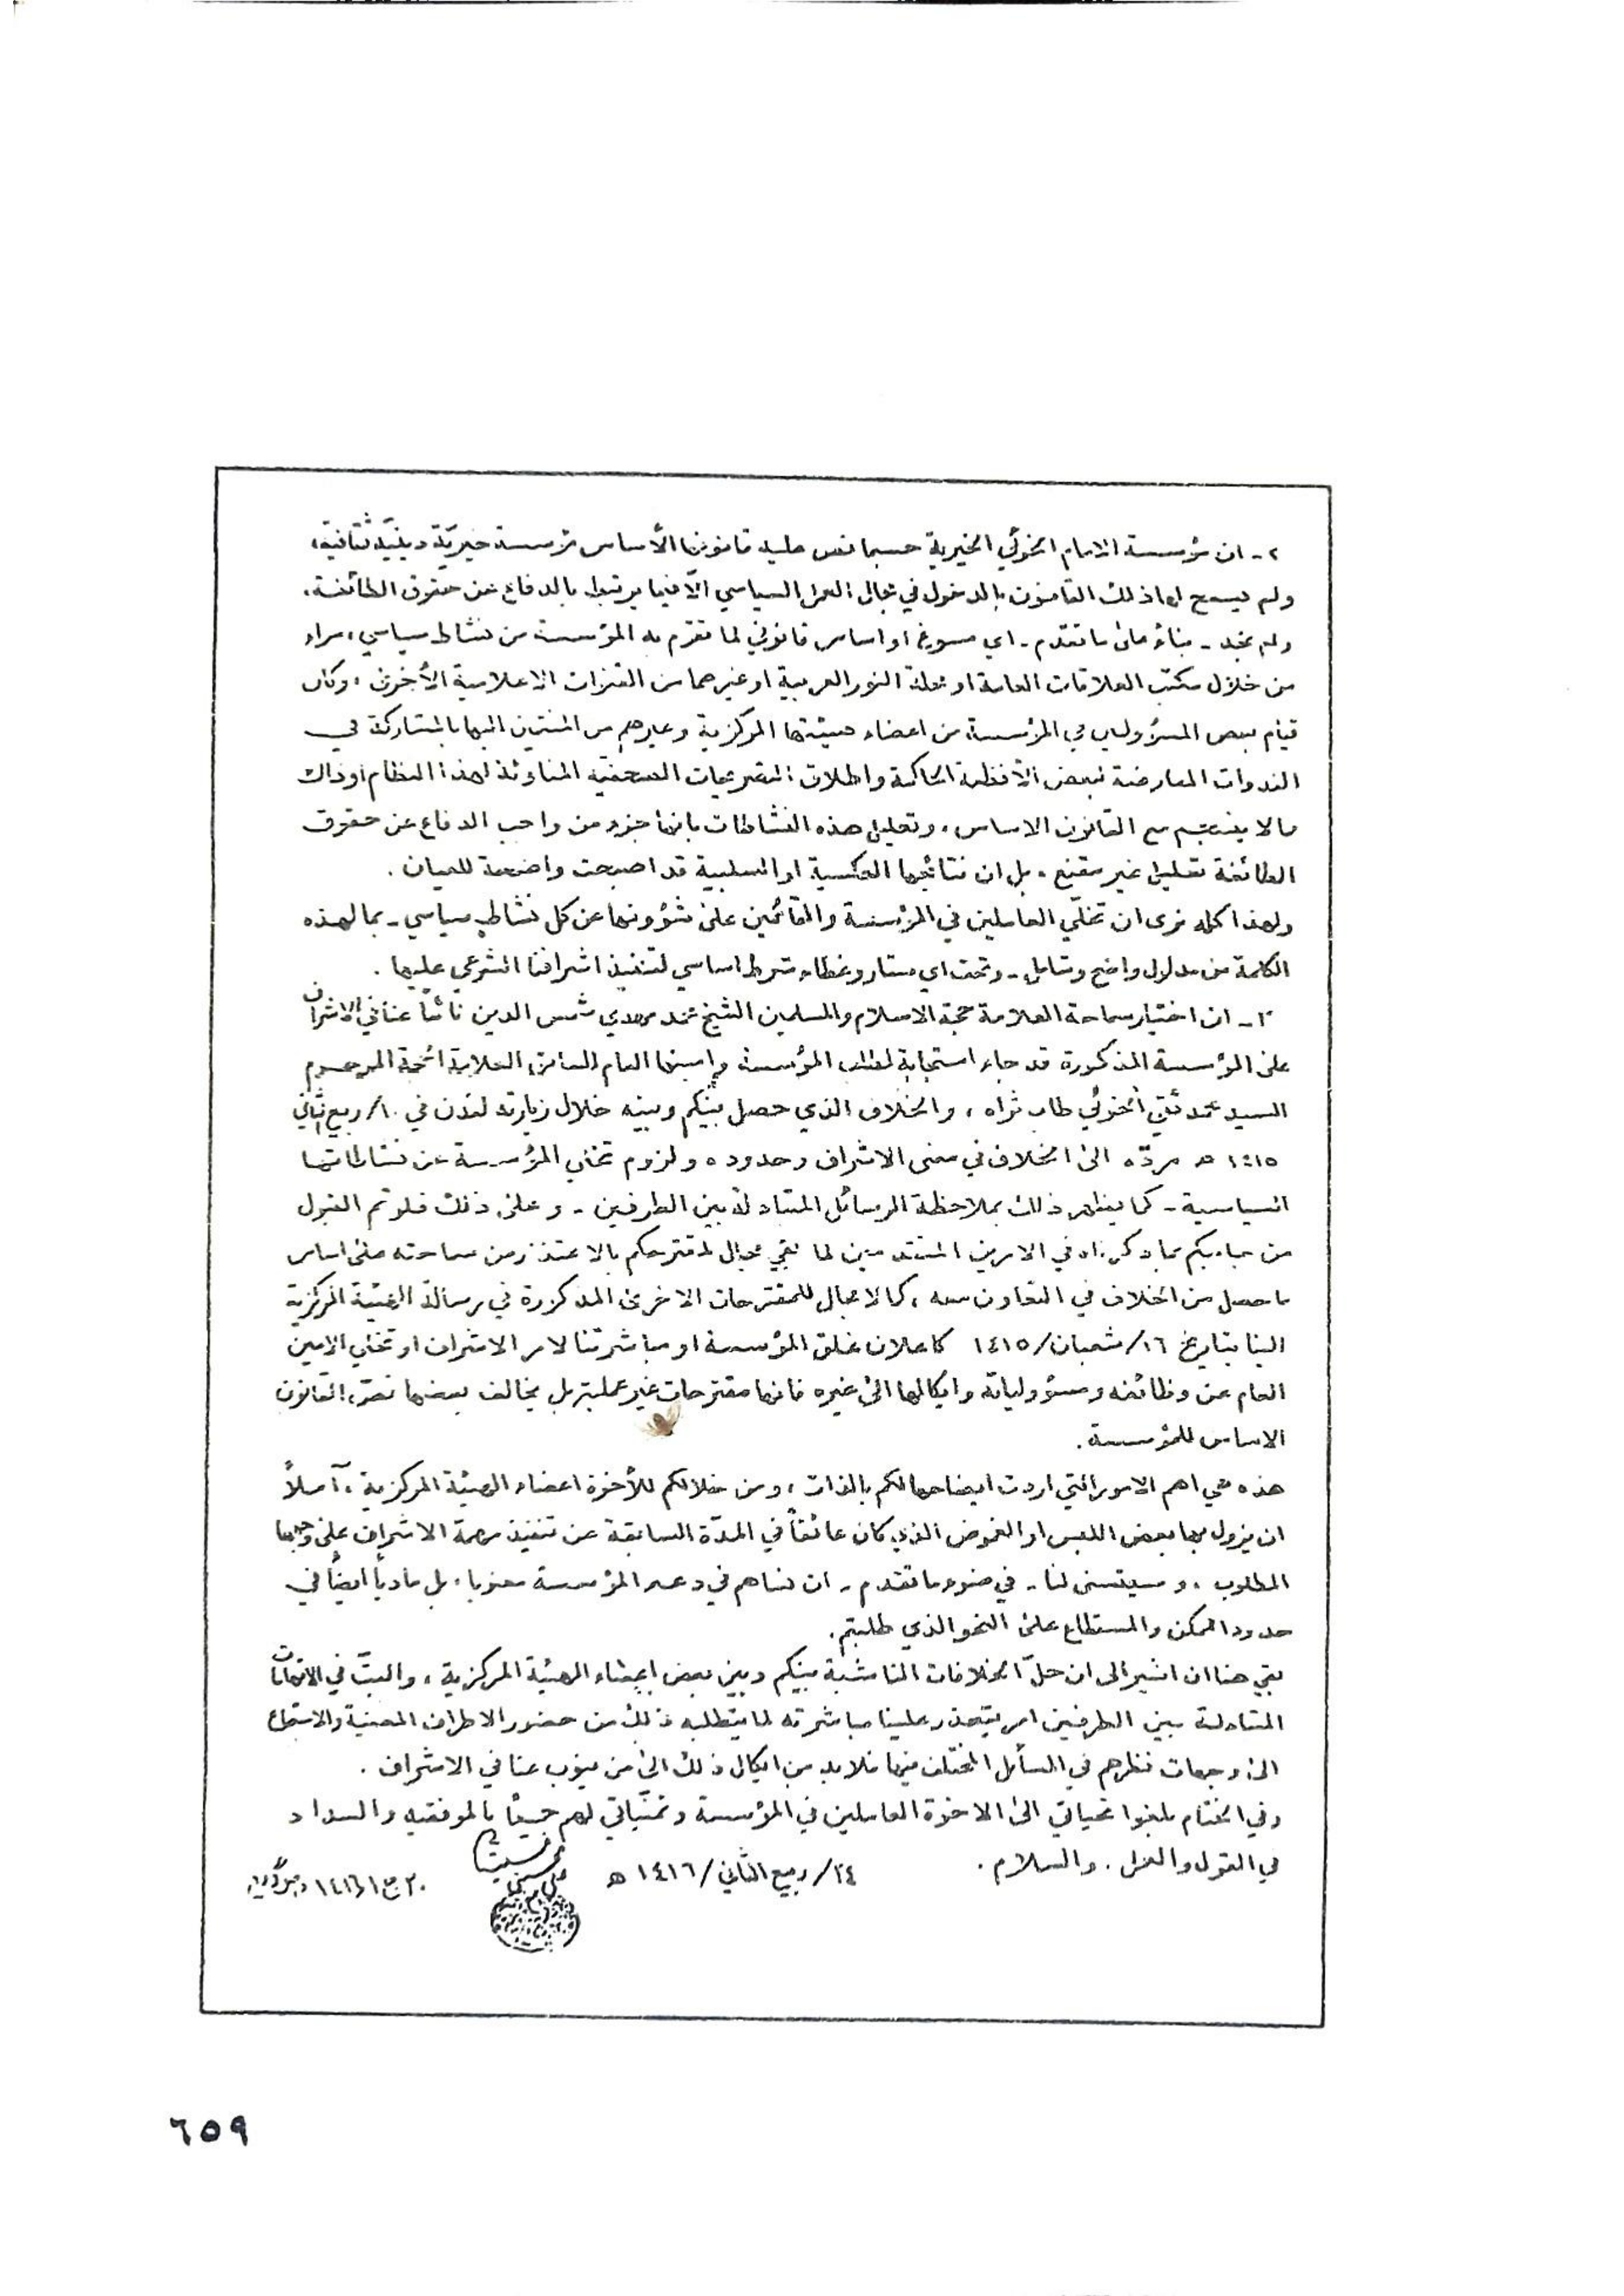 ٢- ان مؤسسة الامام الخوئي الخيرية حسبما نص عليه قانونها الأساس مؤسسة خيريّة دينيّة ثقافية،
ولم يسمح لها ذلك القانون بالدخول في مجال العمل السياسي الّا فيما يرتبط بالدفاع عن حقوق الطائفة،
ولم نجد - بناءً على ما تقدّم - اي مسوغ او اساس قانوني لما تقوّم به المؤسسة من نشاط سياسي، سواء
من خلال مكتب العلاقات العامة او مجلة النور العربية او غيرهما من القنوات الاعلامية الأخرى، وكان
قيام بعض المسؤولين في المؤسسة من اعضاء هيئتها المركزية وغيرهم من المنتمين اليها بالمشاركة في
الندوات المعارضة لبعض الأنظمة الحاكمة واطلاق التصريحات الصحفيّة المناوئة لهذا النظام أو ذاك
مما لا ينسجم مع القانون الاساس، وتعليل هذه النشاطات بانها جزء من واجب الدفاع عن حقوق
الطائفة تعليل غير مقنع، بل ان نتائجها العكسية او السلبية قد اصبحت واضحة للعيان .
ولهذا كله نرى ان تخلّي العاملين في المؤسسة والقائمين على شؤونها عن كل نشاط سياسي - بما لهذه
الكلمة من مدلول واضح وشامل - وتحت اي ستار وغطاء شرط اساسي لتنفيذ اشرافنا الشرعي عليها .
٣- ان اختيار سماحة العلامة حجة الاسلام والمسلمين الشيخ محمد مهدي شمس الدين نائباً عنا في الاشراف
على المؤسسة المذكورة قد جاء استجابة لطلب المؤسسة وامينها العام السابق العلامة الحجة المرحوم
السيد محمد تقي الخوئي طاب ثراه، والخلاف الذي حصل بينكم وبينه خلال زيارته لندن في ١٠/ربيع الثاني
١٤١٥ هـ مردّه الى الخلاف في معنى الاشراف وحدوده ولزوم تخلي المؤسسة عن نشاطاتها
السياسية - كما يظهر ذلك بملاحظة الرسائل المتبادلة بين الطرفين - وعلى ذلك فلو تم القبول
من جانبكم بما ذكرناه في الامرين المتقدمين لما بقي مجال لمقترحكم بالاعتذار من سماحته على اساس
ما حصل من الخلاف في التعاون معه، كما لا مجال للمقترحات الاخرى المذكورة في رسالة الهيئة المركزية
الينا بتاريخ ١٦/شعبان/١٤١٥ كاعلان غلق المؤسسة او مباشرتنا لامر الاشراف او تخلي الامين
العام عن وظائفه ومسؤولياته وايكالها الى غيره فانها مقترحات غير عملية بل يخالف بعضها نصّ القانون
الاساس للمؤسسة .
هذه هي اهم الامور التي اردت ايضاحها لكم بالذات، ومن خلالكم للأخوة اعضاء الهيئة المركزية، آملاً
ان يزول بها بعض اللبس او الغموض الذي كان عائقاً في المدّة السابقة عن تنفيذ مهمة الاشراف على وجهها
المطلوب، وسيتسنى لنا - في ضوء ما تقدم - ان نساهم في دعم المؤسسة معنويا، بل مادياً ايضاً في
حدود الممكن والمستطاع على النحو الذي طلبتم.
بقي هنا ان اشير الى ان حلّ الخلافات الناشبة بينكم وبين بعض اعضاء الهيئة المركزية، والبتّ في الاتهامات
المتبادلة بين الطرفين امر يتعذر علينا مباشرته لما يتطلبه ذلك من حضور الاطراف المعنية والاستماع
الى وجهات نظرهم في المسائل المختلف فيها فلابد من ايكال ذلك الى من ينوب عنا في الاشراف .
وفي الختام بلغوا تحياتي الى الاخوة العاملين في المؤسسة وتمنّياتي لهم جميعاً بالموفقيه والسداد
في القول والعمل . والسلام .
٢٤/ربيع الثاني/١٤١٦ هـ
٦٥٩